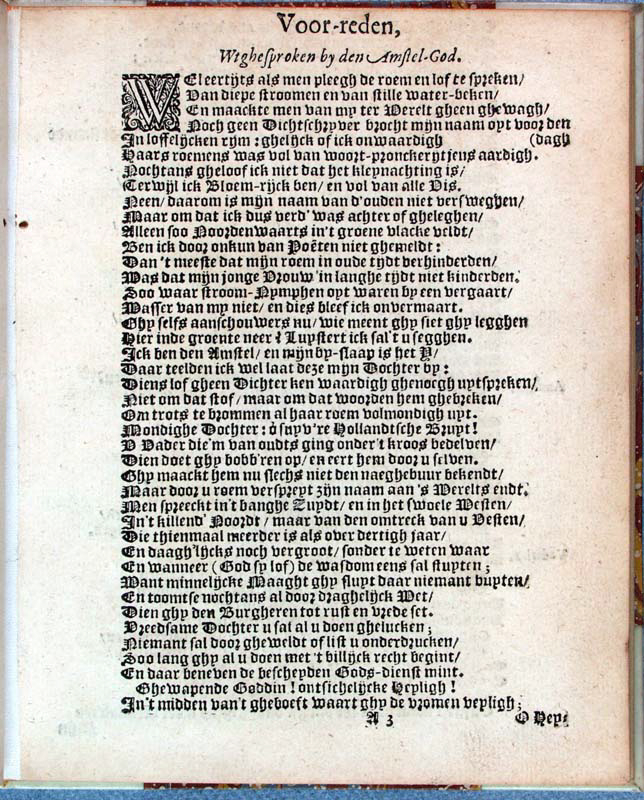 Voor-reden,
Wtghesproken by den Amstel-God.
WEleertijts als men pleegh de roem en lof te spreken/
Van diepe stroomen en van stille water-beken/
En maackte men van my ter Werelt gheen ghewagh/
Noch geen Dichtschryver brocht mijn naam oyt voor den
In loffelijcken rijm: ghelijck of ick onwaardigh (dagh
Haars roemens was vol van woort-pronckerytjens aardigh.
Nochtans gheloof ick niet dat het kleynachting is/
Terwijl ick Bloem-rijck ben/ en vol van alle Vis.
Neen/ daarom is mijn naam van d'ouden niet versweghen/
Maar om dat ick dus verd' was achter of gheleghen/
Alleen soo Noordenwaarts in't groene vlacke veldt/
Ben ick door onkun van Poëten niet ghemeldt:
Dan 't meeste dat mijn roem in oude tijdt verhinderden/
Was dat mijn jonge Vrouw in langhe tijdt niet kinderden.
Soo waar stroom-Nymphen oyt waren by een vergaart/
Wasser van my niet/ en dies bleef ick onvermaart.
Ghy selfs aanschouwers nu/ wie meent ghy siet ghy legghen
Hier inde groente neer? Luystert ick sal't u segghen.
Ick ben den Amstel/ en mijn by-slaap is het Y/
Daar teelden ick wel laat deze mijn Dochter by:
Diens lof gheen Dichter ken waardigh ghenoegh uytspreken/
Niet om dat stof/ maar om dat woorden hem ghebreken/
Om trots te brommen al haar roem volmondigh uyt.
Mondighe Dochter: ô suyv're Hollandtsche Bruyt!
V Vader die'm van oudts ging onder't kroos bedelven/
Dien doet ghy bobb'ren op/ en eert hem door u selven.
Ghy maackt hem nu slechs niet den naeghebuur bekendt/
Maar door u roem verspreyt zijn naam aan 's Werelts endt.
Men spreeckt in't banghe Zuydt/ en in het swoele Westen/
In't killend' Noordt/ maar van den omtreck van u Vesten/
Die thienmaal meerder is als over dertigh jaar/
En daagh'lijcks noch vergroot/ sonder te weten waar
En wanneer (God sy lof) de wasdom eens sal stuyten;
Want minnelijcke Maaght ghy sluyt daar niemant buyten/
En toomtse nochtans al door draghelijck Wet/
Dien ghy den Burgheren tot rust en vrede set.
Vreedsame Dochter u sal al u doen ghelucken;
Niemant sal door gheweldt of list u onderdrucken/
Soo lang ghy al u doen met 't billijck recht begint/
En daar beneven de bescheyden Gods-dienst mint.
Ghewapende Gaddin! ontsichelijcke Heyligh!
In't midden van't gheboeft waart ghy de vromen veyligh;
A 3 O Hey-